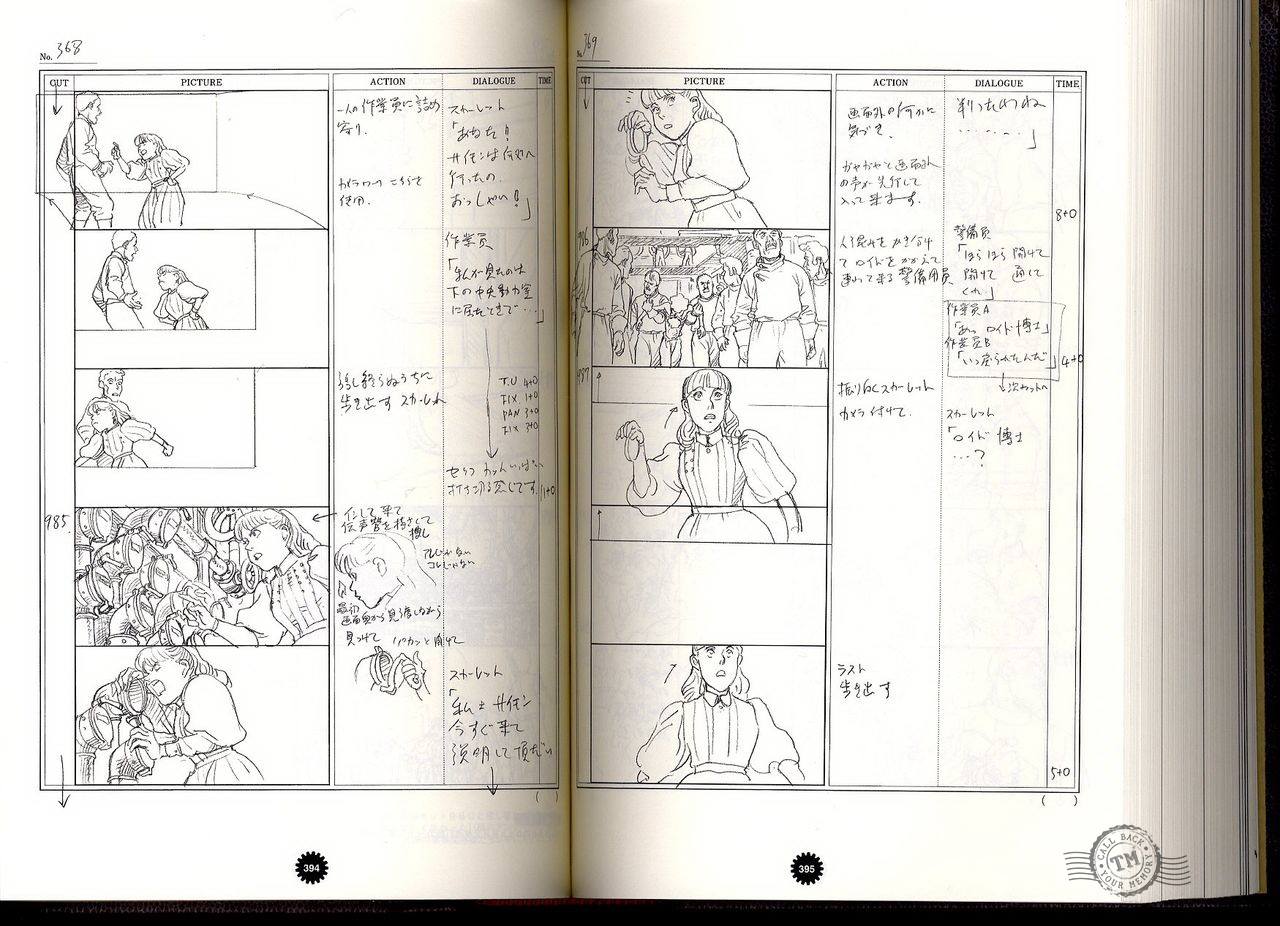 No. 368
CUT PICTURE ACTION DIALOGUE TIME
一人の作業員に詰め
寄り.
カメラワーク こちらを
使用.
スカーレット
「あなた!
サイモンは何処へ
行ったの.
おっしゃい!」
作業員
「私が見たのは
下の中央動力室
に居たときで…」
話し終らぬうちに
歩き出す スカーレット
T.U 4+0
FIX. 1+0
PAN 3+0
FIX 3+0
セリフ カットいっぱい
感じです.
11+0
985.
INして来て
伝声管を指さして
探し
アレじゃない
コレじゃない
最初
画面奥から見渡しながら
見つけて パカンと開けて
スカーレット
「私よ サイモン
今すぐ来て
説明して頂だい
( )
394
No. 369
CUT PICTURE ACTION DIALOGUE TIME
画面外の何かに
気づき.
がやがやと画面外
の声が先行して
入って来ます.
判ったわね
・・・・・・」
8+0
986
人混みをかき分け
てロイドをかかえて
連れて来る警備員
警備員
「ほらほら 開けて
開けて 通して
くれ」
作業員A
「あっ ロイド博士」
作業員B
「いつ戻られたんだ」
次カットへ
4+0
987
振り向くスカーレット
カメラ付けて.
スカーレット
「ロイド博士
…?
ラスト
歩き出す
5+0
( )
395
CALL BACK
TM
YOUR MEMORY